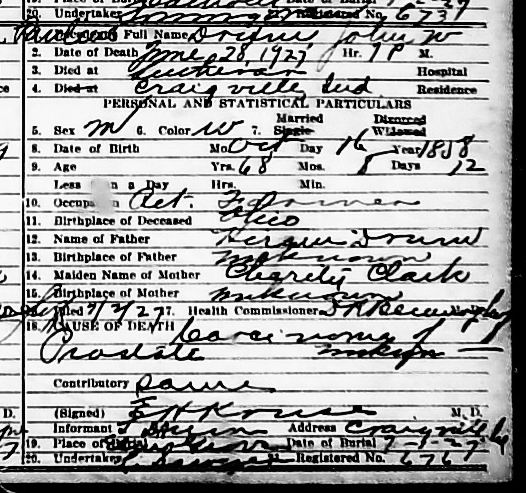 20. Undertaker Registered No. 6737
Full Name John W
2. Date of Death June 28, 1927 Hr. 9 P M.
3. Died at Lutheran Hospital
4. Died at Craigville Ind Residence
PERSONAL AND STATISTICAL PARTICULARS
5. Sex M 6. Color W 7. Married Single Divorced Widowed
8. Date of Birth Mo. Oct Day 16 Year 1858
9. Age Yrs. 68 Mos. 8 Days 12
Less n a Day Hrs. Min.
10. Occupation Ret. Farmer
11. Birthplace of Deceased Ohio
12. Name of Father
13. Birthplace of Father unknown
14. Maiden Name of Mother Charity Clark
15. Birthplace of Mother unknown
Filed 7/2/27 17. Health Commissioner M. D.
18. CAUSE OF DEATH Carcinoma of
Prostate
Contributory same
(Signed) E H Kruse M. D.
Informant Address Craigville
19. Place of Burial Date of Burial 7-1-27
20. Undertaker Registered No. 6767